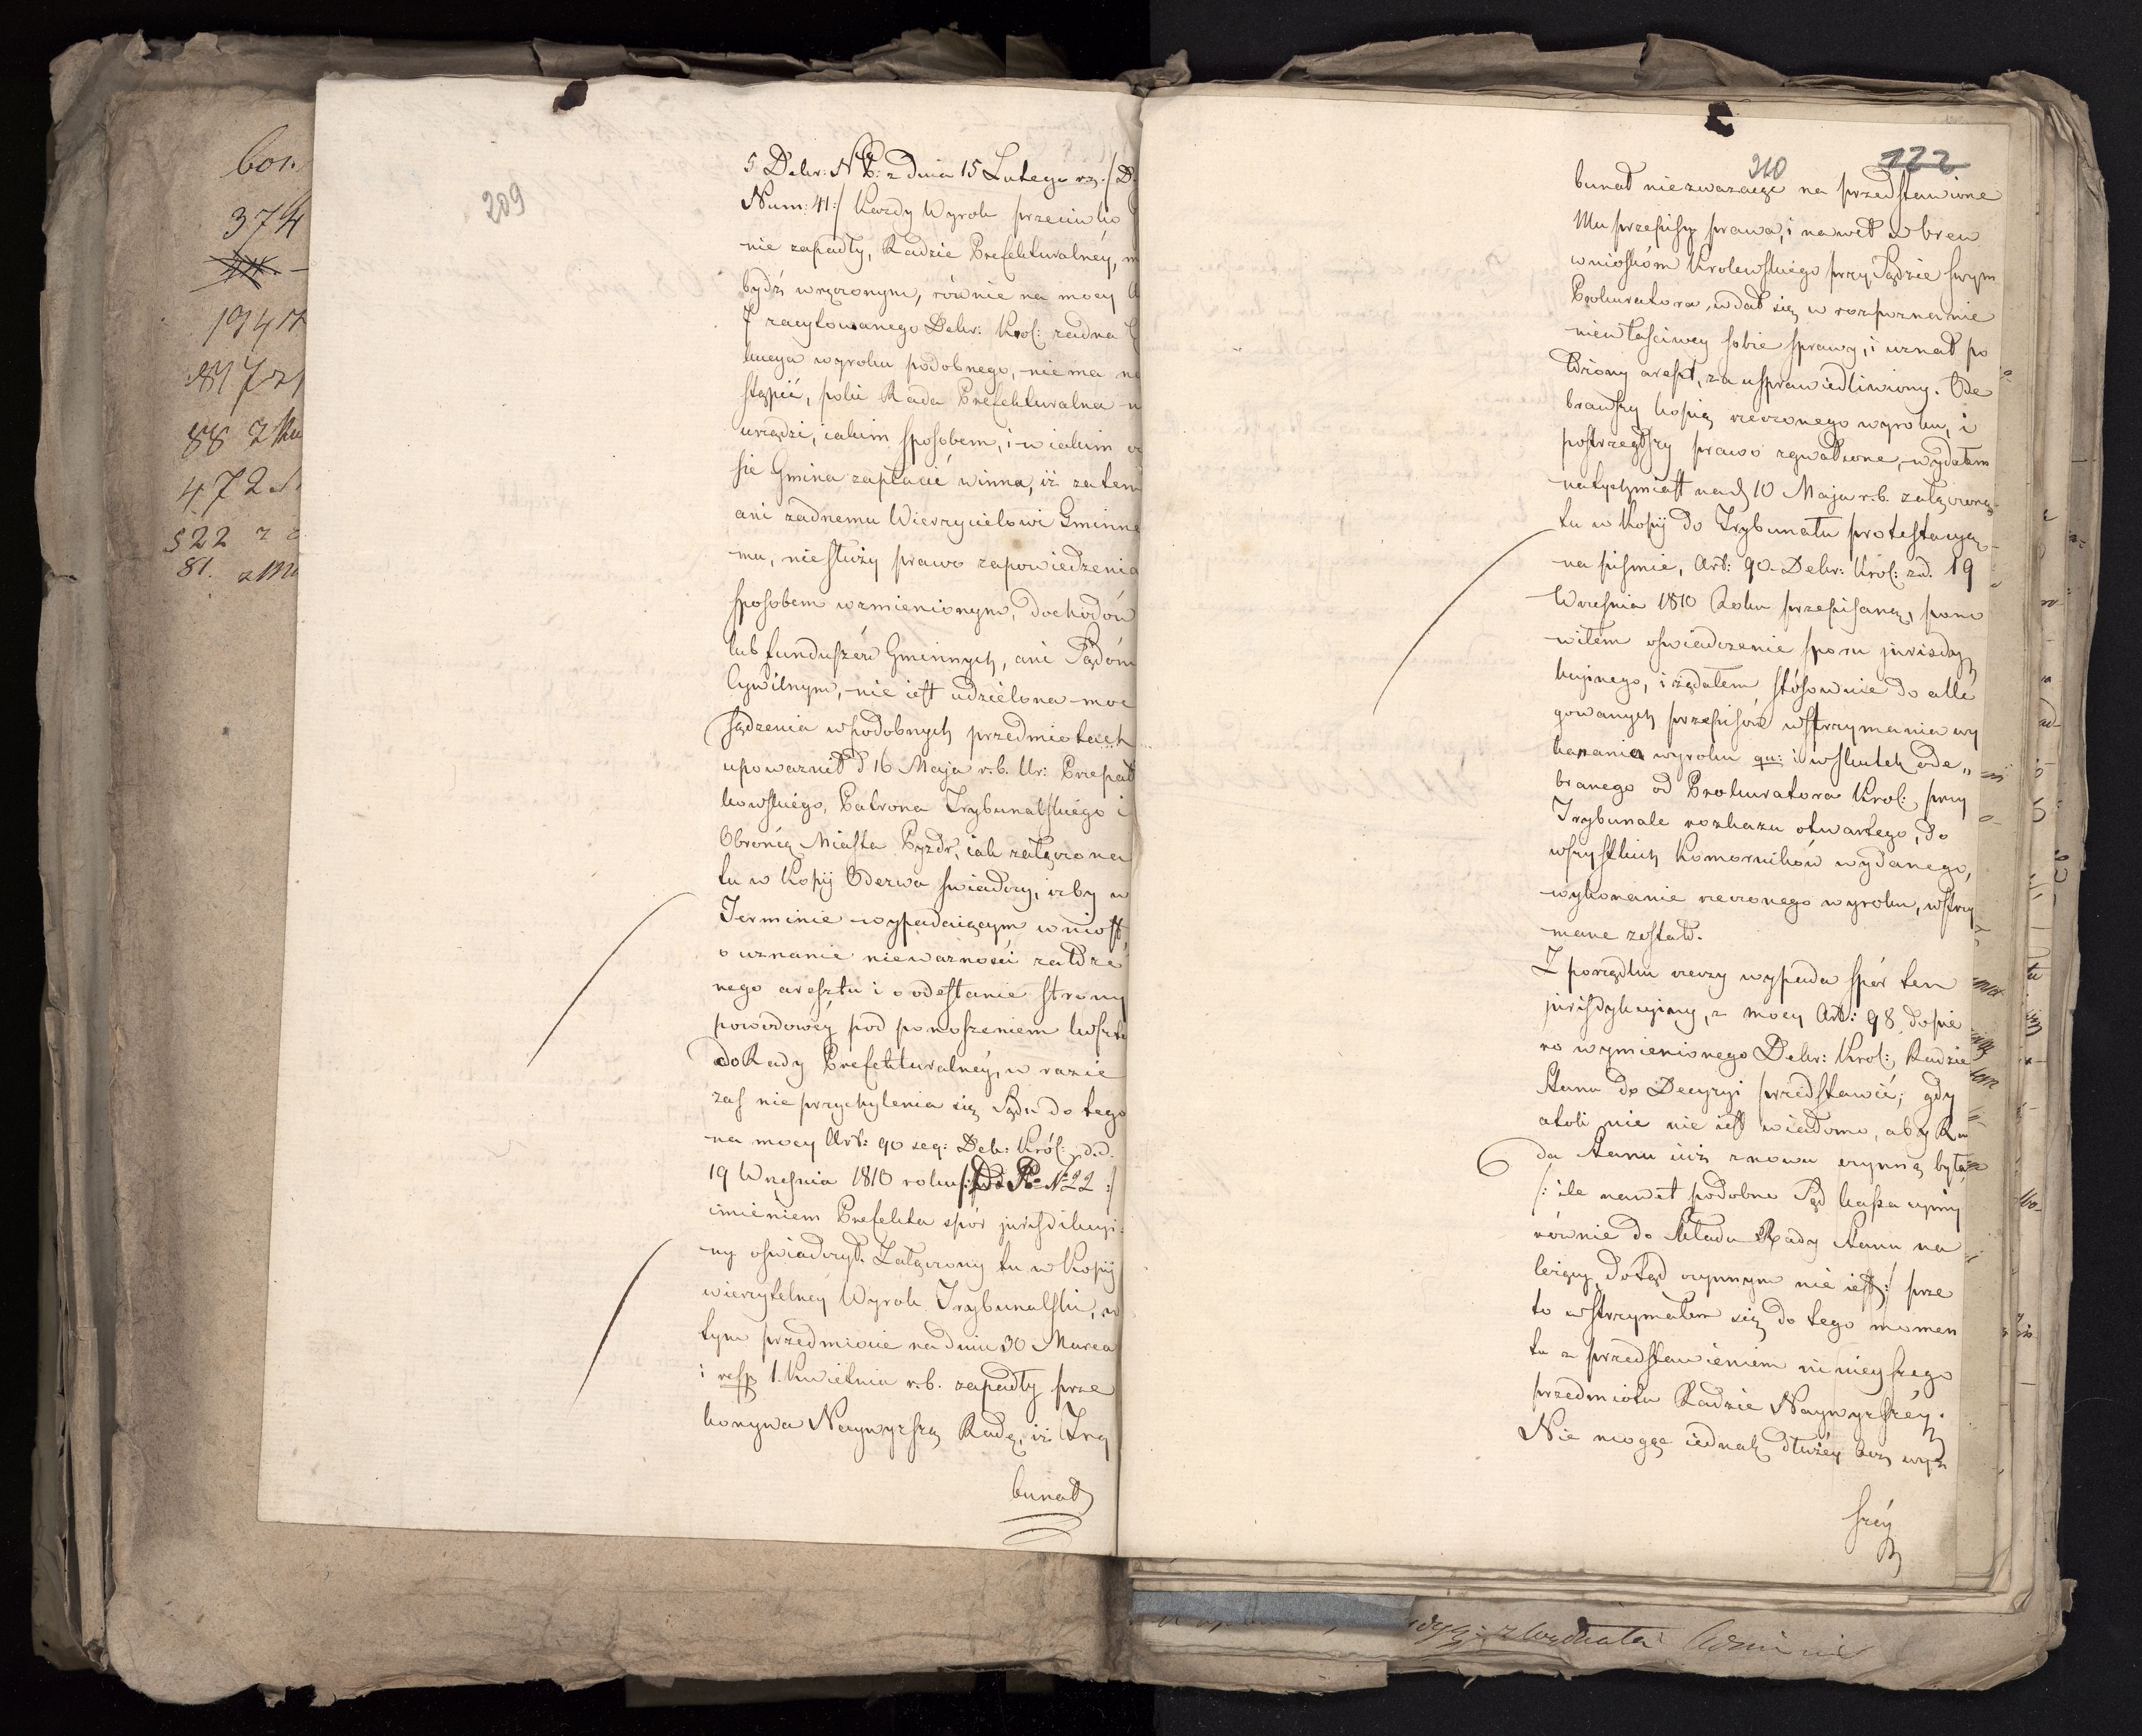 209
5 Dekr: N b: z dnia 15 Lutego rz. /: D.
Num: 41:/ Kazdy Wyrok przeciwko
nie zapadły, Radzie Prefekturalnéy, m
bydź wręczonym, równie na mocy A
7 zacytowanego Dekr: Krol: zadna
kucya wyroku podobnego, niema na
stąpić, póki Rada Prefekturalna n
urządzi, iakim sposobem, i w iakim cz
sie Gmina zapłacić winna, iż zatem
ani zadnemu Wierzycielowi Gminne
mu, niesłuży prawo zapowiedzenia
sposobem wzmienionym, dochodów
lub funduszów Gminnych, ani Sądóm
Cywilnym, nie iest udzielona moc
sądzenia w podobnych przedmiotach
upoważnił d 16 Maja r.b. Ur: Przepał
kowskiégo, Patrona Trybunalskiégo i
Obrońcę Miasta Pyzdr, iak załączona
tu w Kopij Odezwa świadczy, iżby w
Terminie wypadaiącym wniosł
o uznanie nieważności załoźo
nego aresztu i o odesłanie strony
powodowéy pod ponoszeniem koszt
do Rady Prefekturalnéy, w razie
zaś nieprzychylenia się Sądu do tego
na mocy Art: 90 seq: Dek: Król: d.d.
19 Września 1810 roku /: N 22 :/
imieniem Prefekta spór jurisdikcyi:
ny oświadczył. Załączony tu w Kopij
wierzytelnéy Wyrok Trybunalski, w
tym przedmiocie na dniu 30 Marca
i resp 1. Kwietnia r.b. zapadły prze
konywa Naywyższą Radę, iż Try
bunał
210
122
bunał niezwazaiąc na przedstawione
Mu przepisy prawa, i nawet wbrew
wnioskóm Krolewskiégo przy Sądzie swym
Prokuratora, wdał się w rozpoznanie
niewłaściwey sobie sprawy, i uznał po
łożony areszt, za usprawiedliwiony. Ode
brawszy kopią rzeczonego wyroku, i
postrzegłszy prawo zgwałcone, wydałem
natychmiast na d 10 Maja r.b. załączoną
tu w Kopij do Trybunału protestacyą
na piśmie, Art: 90. Dekr: Król: z d. 19
Września 1810 Roku przepisaną, pono
wiłem oświadczenie sporu jurisdy
kcyinego, i żądałem stósownie do alle
gowanych przepisów wstrzymania wy
konania wyroku qu: i w skutek ode„
branego od Prokuratora Krol: przy
Trybunale rozkazu otwartego, do
wszystkich Komorników wydanego,
wykonanie rzeczonego wyroku, wstrzy
mane zostało.
Z porządku rzeczy wypada spór ten
jurisdykcyiny, z mocy Art: 98 dopie
ro wymienionego Dekr: Krol:, Radzie
Stanu do Decyzyi przedstawić; gdy
atoli nie nie iest wiadomo, aby Ra
da Stanu iuż znowu czynną była
/: ile nawet podobno Sąd kassacyiny
równie do składu Rady Stanu na
leżący, dotąd czynnym nie iest :/ prze
to wstrzymałem się do tego momen
tu z przedstawieniem ninieyszego
przedmiotu Radzie Naywyższéy.
Nie mogąc iednak dłużéy bez wyż
széy